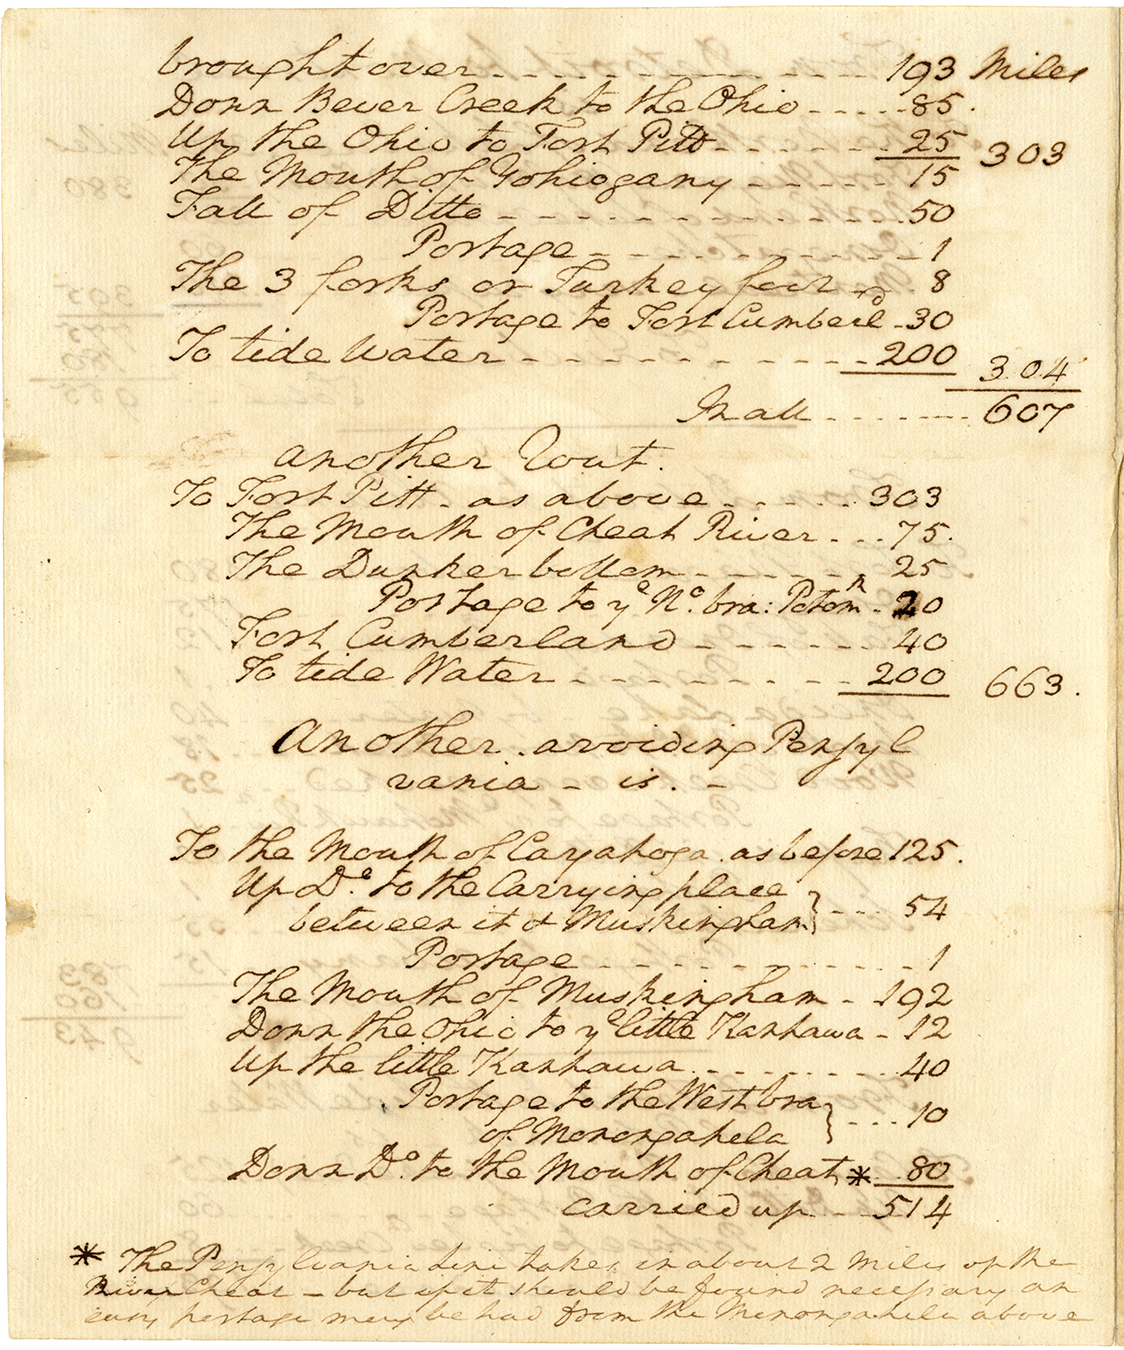 brought over - - - - - - - - - - - - 193 Miles
Down Bever Creek to the Ohio - - - - - 85.
Up the Ohio to Fort Pitt - - - - - - 25 303
The Mouth of Yohiogany - - - - - 15
Fall of Ditto - - - - - - - - - - - - 50
Portage - - - - - - - - - - 1
The 3 forks or Turkey foot - - 8
Portage to Fort Cumberld - 30
To tide Water - - - - - - - - - - - 200 304
In all - - - - - - - 607
another Rout.
To Fort Pitt - as above - - - - - 303
The Mouth of Cheat River - - - 75.
The Dunker bottom - - - - - - 25
Portage to ye No. bra: Potomk - 20
Fort Cumberland - - - - - - - 40
To tide Water - - - - - - - - - 200 663.
Another - avoiding Pensyl
vania - is. -
To the Mouth of Cayahoga as before 125.
Up De. to the Carrying place
between it & Muskingham } - - - 54
Portage - - - - - - - - - - 1
The Mouth of Muskingham - 192
Down the Ohio to ye little Kanhawa - 12
Up the little Kanhawa - - - - - - - - 40
Portage to the West bra
of Monongahela } - - - 10
Down Do. to the Mouth of Cheat * 80
carried up - - 514
* The Pensylvania line takes in about 2 Miles of the
River Cheat - but if it should be found necessary an
easy portage may be had from the Monongahela above